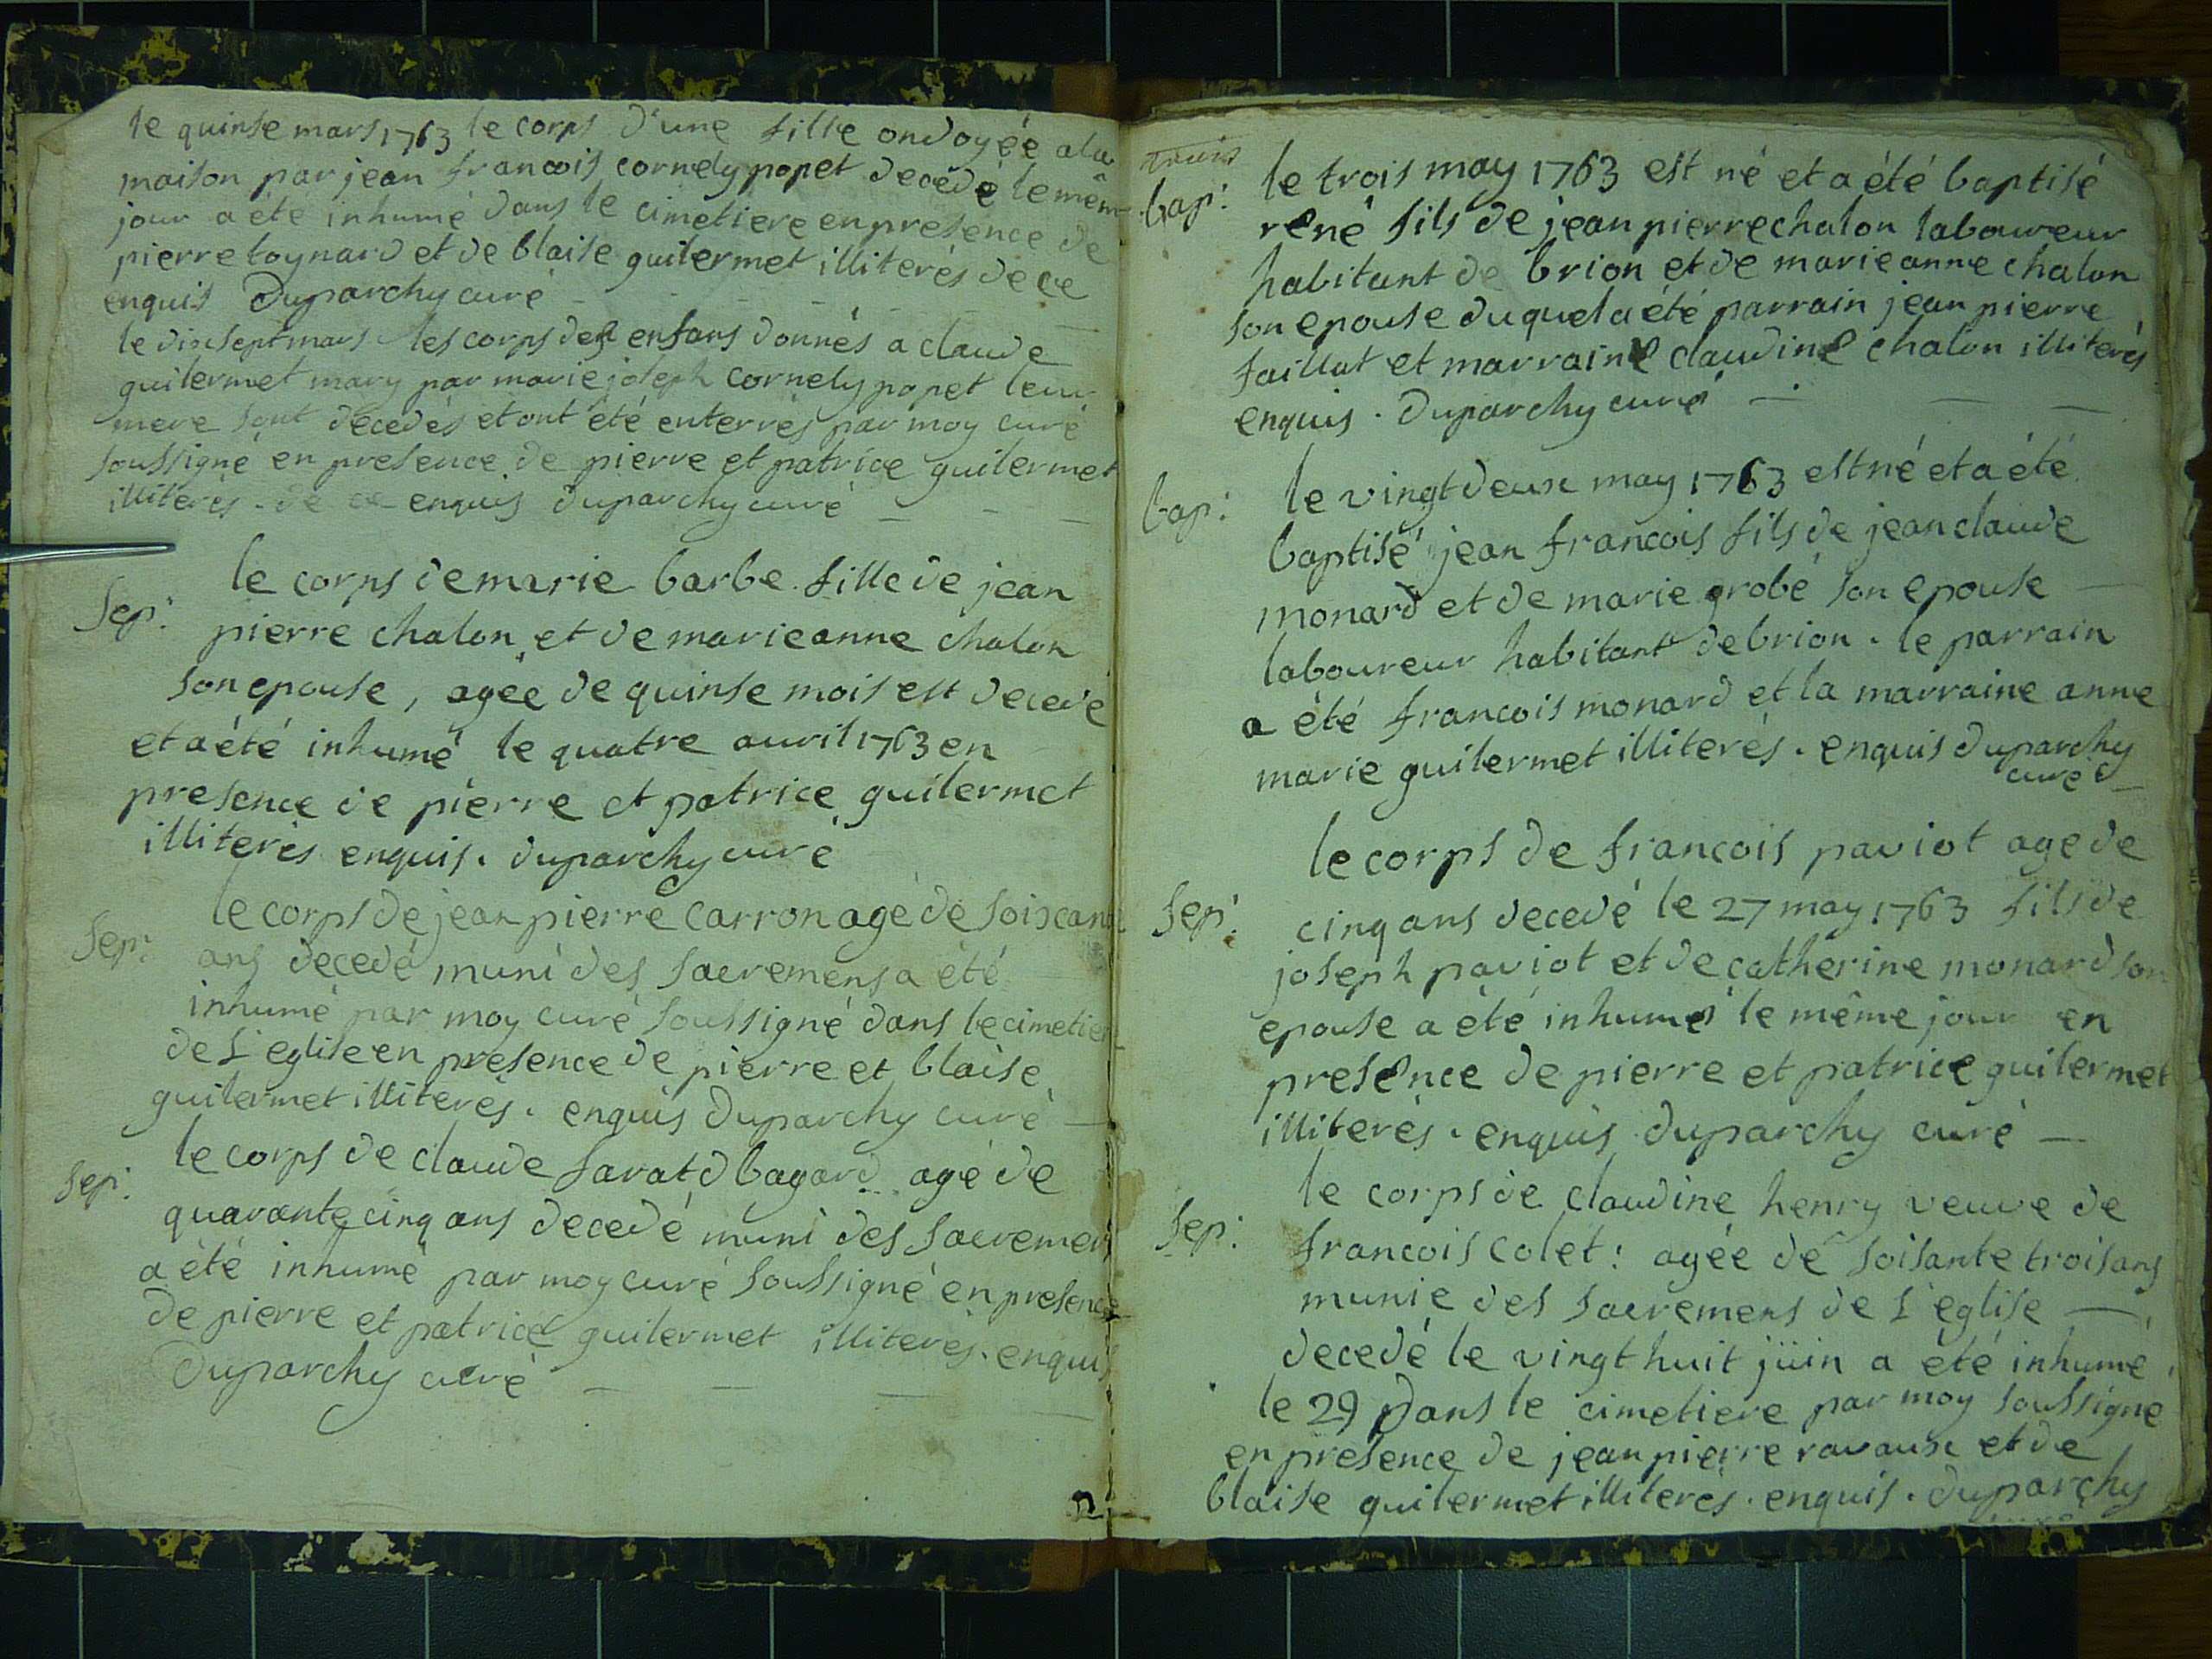 le quinse mars 1763 le corps d'une fille ondoyée a la
maison par jean francois cornely popet decedé le mêm
jour a été inhumé dans le cimetiere en presence de
pierre toynard et de blaise guilermet illiterés de ce
enquis Duparchy curé
le dixsept mars les corps des enfans donnés a claude
guilermet mary par marie joseph cornely popet leur
mere sont decedés et ont été enterrés par moy curé
soussigné en presence de pierre et patrice guilermet
illiterés de ce enquis duparchy curé
Sep: le corps de marie barbe fille de jean
pierre chalon et de marieanne chalon
son epouse, agée de quinse mois est decedé
et a été inhumé le quatre auril 1763 en
presence de pierre et patrice guilermet
illiterés enquis. duparchy curé
Sep: le corps de jean pierre carron agé de soixan
ans decedé muni des sacremens a été
inhumé par moy curé soussigné dans le cimetier
de L'eglise en presence de pierre et blaise
guilermet illiterés. enquis Duparchy curé
Sep: le corps de claude bagard agé de
quarante cinq ans decedé muni des sacremen
a été inhumé par moy curé soussigné en presence
de pierre et patrice guilermet illiterés. enquis
Duparchy curé
trois
bap: le trois may 1763 est né et a été baptisé
rené fils de jean pierre chalon laboureur
habitant de brion et de marie anne chalon
son epouse duquel a été parrain jean pierre
faillat et marraine claudine chalon illiterés
enquis. Duparchy curé
bap: le vingt deux may 1763 est né et a été
baptisé jean francois fils de jean claude
monard et de marie grobé son epouse
laboureur habitant de brion. le parrain
a été francois monard et la marraine anne
marie guilermet illiterés. enquis duparchy
curé
le corps de francois paviot age de
Sep: cinq ans decedé le 27 may 1763 fils de
joseph paviot et de catherine monard son
epouse a été inhumé le même jour en
presence de pierre et patrice guilermet
illiterés. enquis Duparchy curé
le corps de claudine henry veuve de
Sep: francois colet: agée de soisante trois ans
munie des sacremens de L'eglise
decedé le vingt huit jüin a été inhumé
le 29 Dans le cimetiere par moy soussigné
en presence de jean pierre ravaux et de
blaise guilermet illiterés. enquis. duparchy